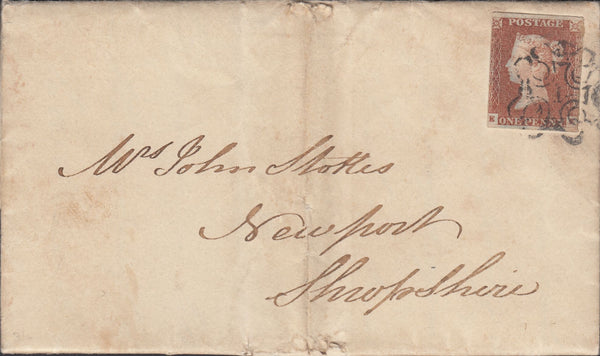 POSTAGE
ONE PENNY
Mrs John Stokes
Newport
Shropshire